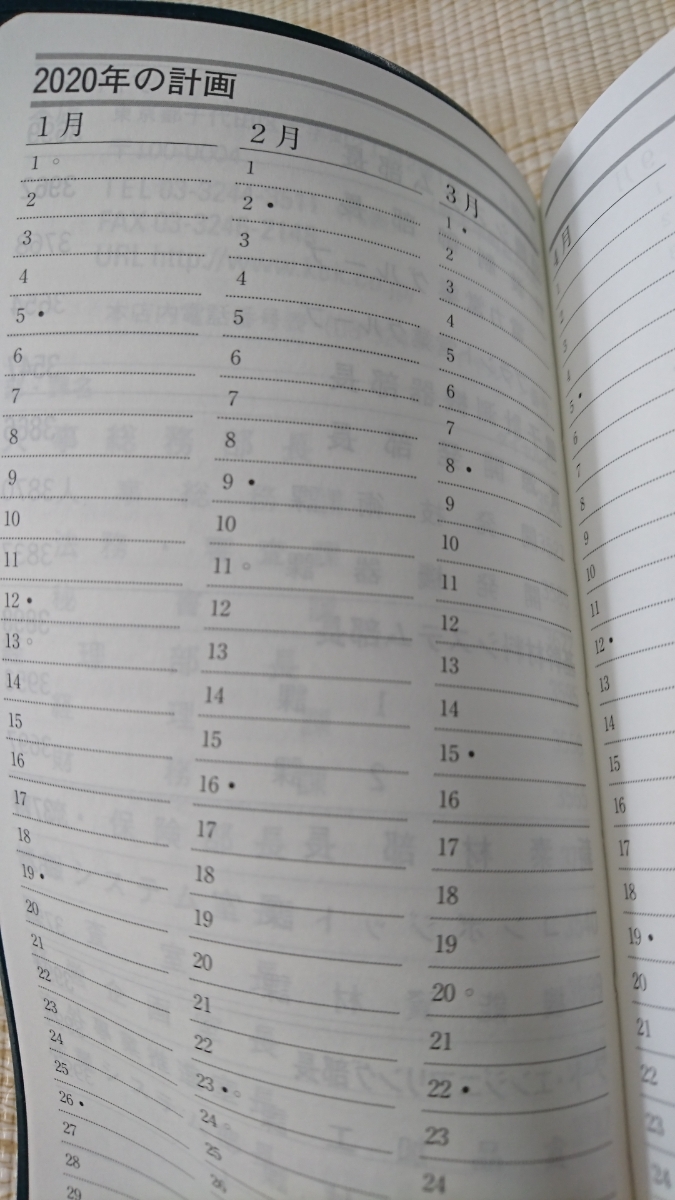 2020年の計画
1月
1○
2
3
4
5•
6
7
8
9
10
11
12•
13○
14
15
16
17
18
19•
20
21
22
23
24
25
26•
27
28
29
2月
1
2•
3
4
5
6
7
8
9•
10
11○
12
13
14
15
16•
17
18
19
20
21
22
23•○
24○
25
26
3月
1•
2
3
4
5
6
7
8•
9
10
11
12
13
14
15•
16
17
18
19
20○
21
22•
23
24
4月
1
2
3
4
5•
6
7
8
9
10
11
12•
13
14
15
16
17
18
19•
20
21
22
23
24